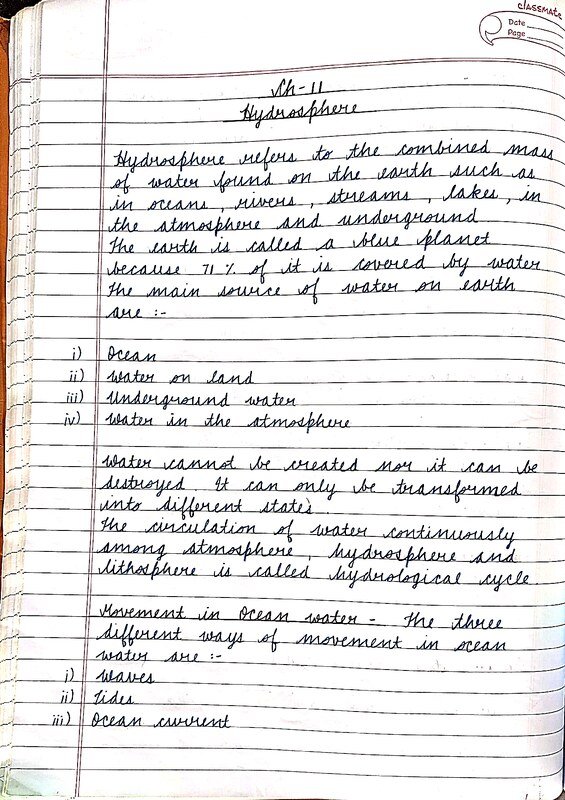 classmate
Date
Page
Ch-11
Hydrosphere
Hydrosphere refers to the combined mass
of water found on the earth such as
in oceans, rivers, streams, lakes, in
the atmosphere and underground
The earth is called a blue planet
because 71% of it is covered by water
The main source of water on earth
are :-
i) Ocean
ii) Water on land
iii) Underground water
iv) Water in the atmosphere
Water cannot be created nor it can be
destroyed. It can only be transformed
into different states.
The circulation of water continuously
among atmosphere, hydrosphere and
lithosphere is called hydrological cycle.
Movement in Ocean water - The three
different ways of movement in ocean
water are :-
i) Waves
ii) Tides
iii) Ocean current